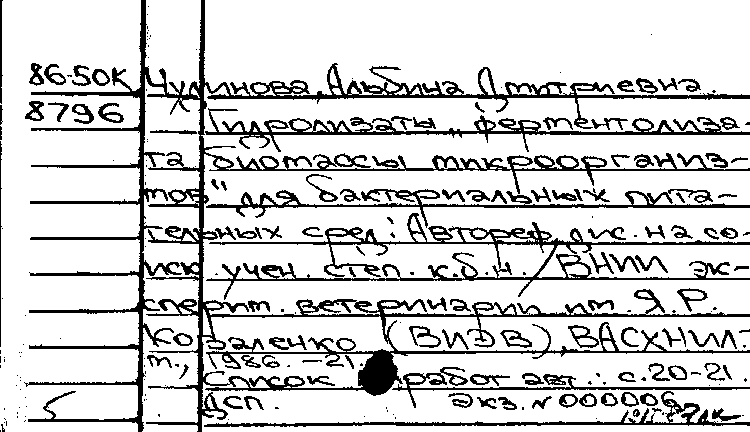 86-50К Чулинова, Альбина Дмитриевна.
8796 Гидролизаты „ферментолиза-
та биомассы микроорганиз-
мов" для бактериальных пита-
тельных сред: Автореф. дис. на со-
иск. учен. степ. к.б.н. / ВНИИ эк-
сперим. ветеринарии им. Я.Р.
Коваленко (ВИЭВ), ВАСХНИЛ.-
м., 1986. - 21
Список работ авт.: с.20-21.
5 Дсп. экз. N 000006